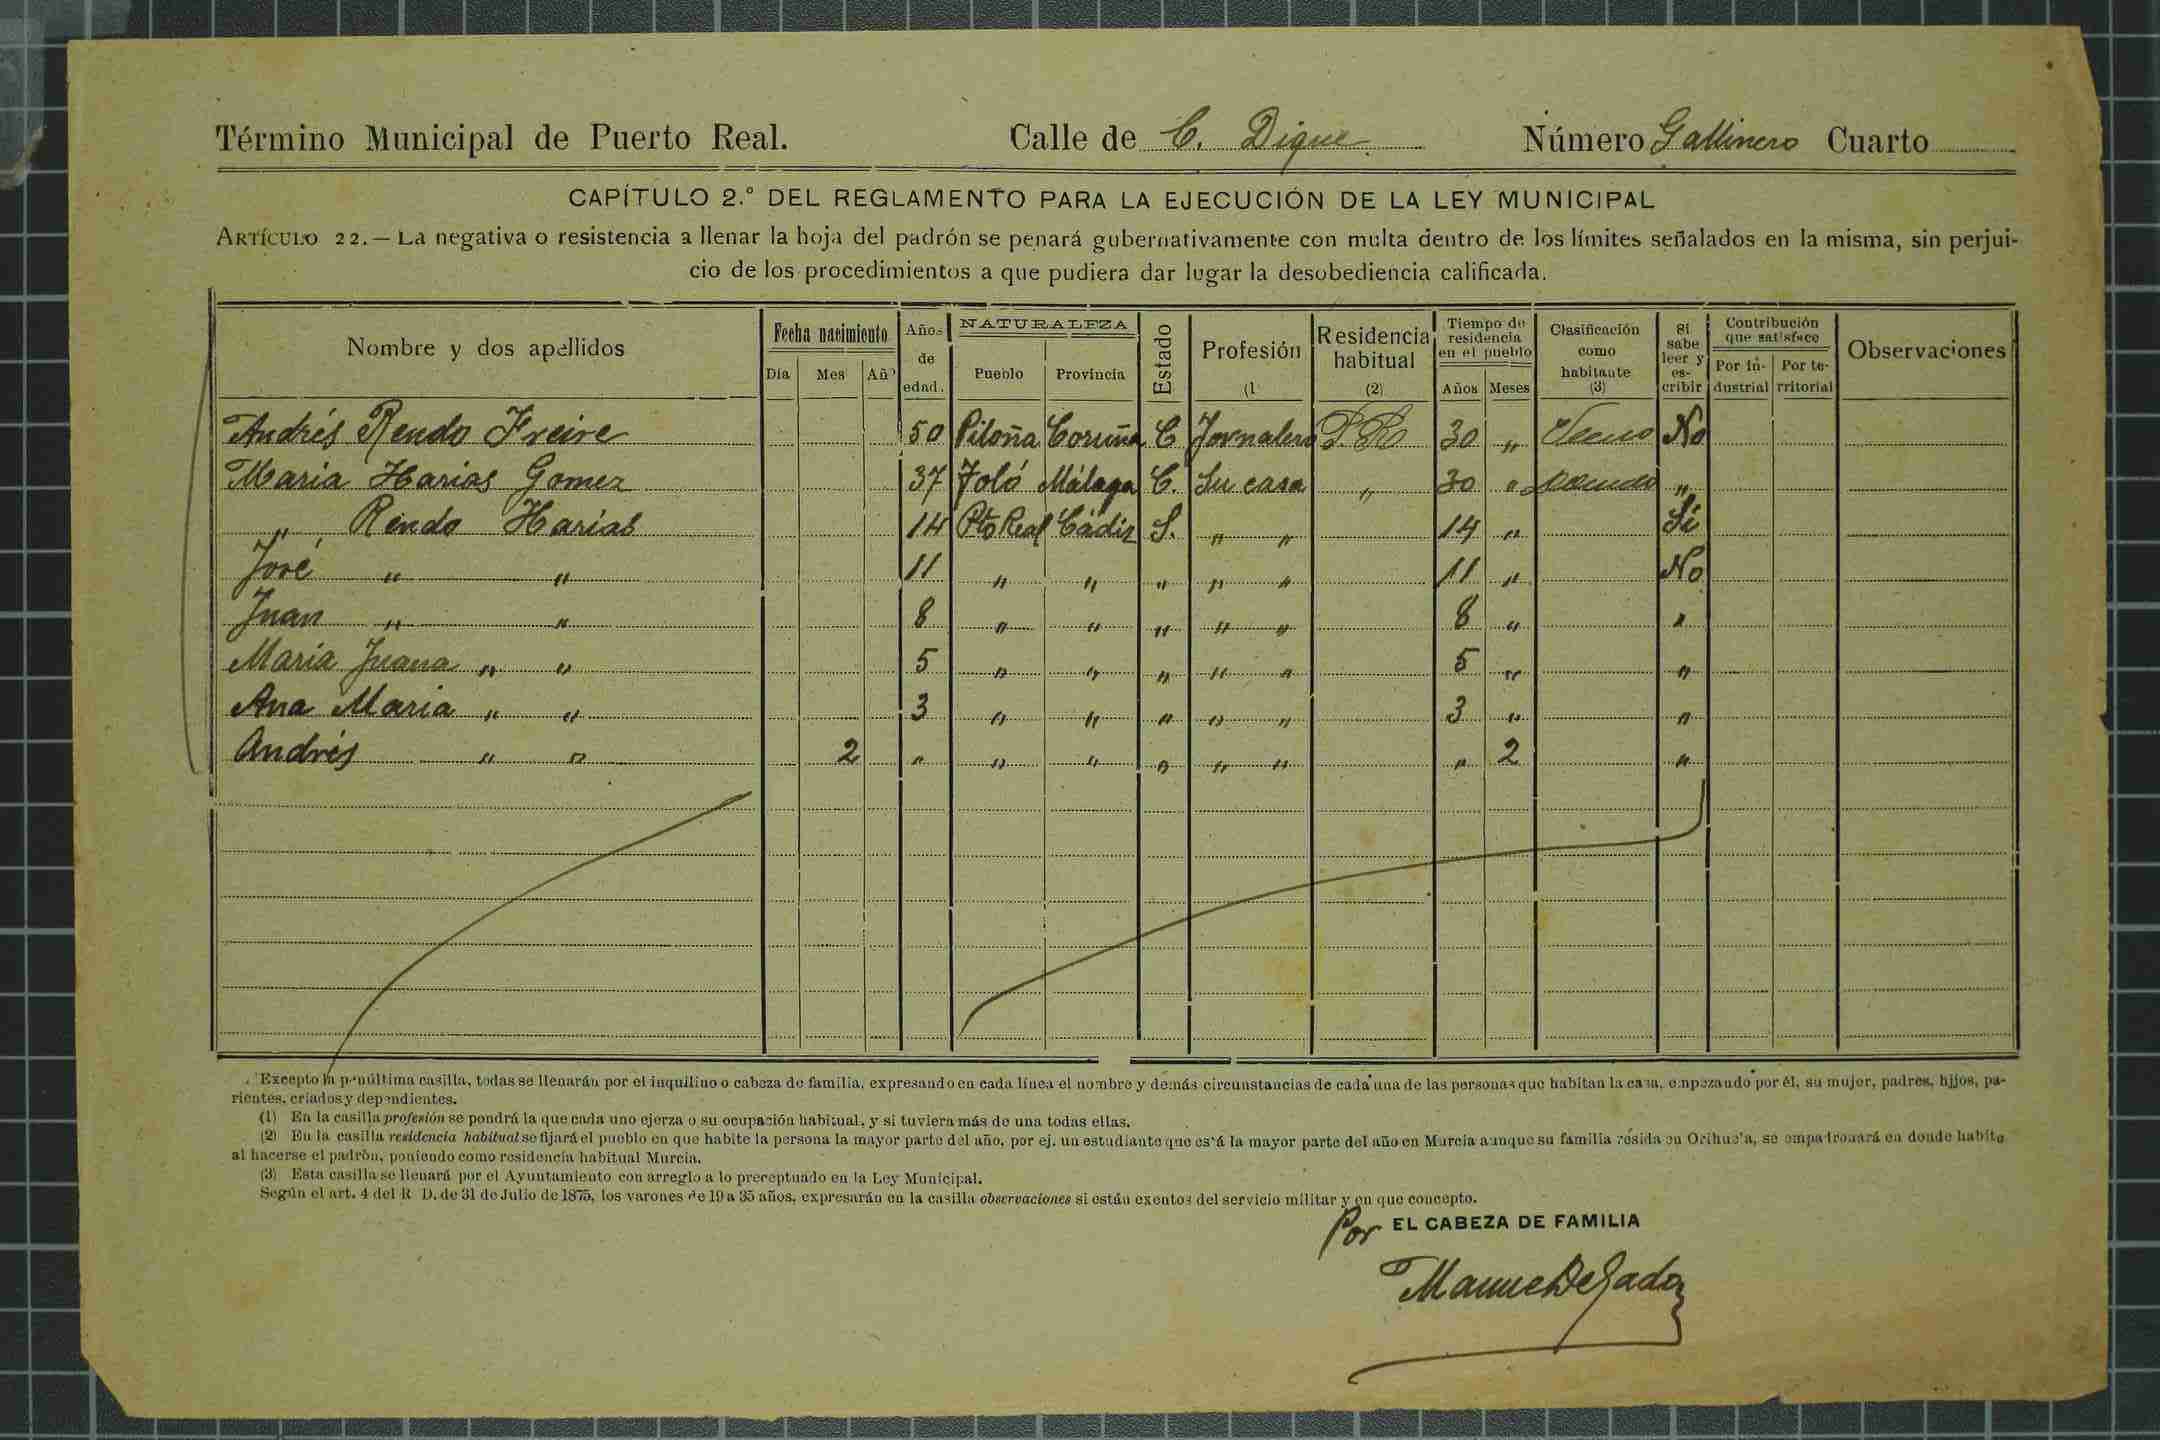 Término Municipal de Puerto Real. Calle de C. Dique Número Gallinero Cuarto
CAPÍTULO 2.° DEL REGLAMENTO PARA LA EJECUCIÓN DE LA LEY MUNICIPAL
ARTÍCULO 22.—La negativa o resistencia a llenar la hoja del padrón se penará gubernativamente con multa dentro de los límites señalados en la misma, sin perjui-
cio de los procedimientos a que pudiera dar lugar la desobediencia calificada.
Nombre y dos apellidos Fecha nacimiento Día Mes Añ° Años de edad. NATURALEZA Pueblo Provincia Estado Profesión (1 Residencia habitual (2) Tiempo de residencia en el pueblo Años Meses Clasificación como habitante (3) Si sabe leer y es- cribir Contribución que satisface Por in- dustrial Por te- rritorial Observaciones
Andrés Rendo Freire 50 Piloña Coruña C Jornalero P. R 30 " Vecino No
Maria Harias Gomez 37 Joló Málaga C. Su casa " 30 " "
" Rendo Harias 14 Pto Real Cádiz S. " " 14 " Si
José " " 11 " " " " " 11 " No
Juan " " 8 " " " " " 8 " "
Maria Juana " " 5 " " " " " 5 " "
Ana Maria " " 3 " " " " " 3 " "
Andrés " " 2 " " " " " " " 2 "
Excepto la penúltima casilla, todas se llenarán por el inquilino o cabeza de familia, expresando en cada línea el nombre y demás circunstancias de cada una de las personas que habitan la casa, empezando por él, su mujer, padres, hjjos, pa-
rientes, criados y dependientes.
(1) En la casilla profesión se pondrá la que cada uno ejerza o su ocupación habitual, y si tuviera más de una todas ellas.
(2) En la casilla residencia habitual se fijará el pueblo en que habite la persona la mayor parte del año, por ej. un estudiante que está la mayor parte del año en Murcia aunque su familia resida en Orihuela, se empadronará en donde habite
al hacerse el padrón, poniendo como residencia habitual Murcia.
(3) Esta casilla se llenará por el Ayuntamiento con arreglo a lo preceptuado en la Ley Municipal.
Según el art. 4 del R D. de 31 de Julio de 1875, los varones de 19 a 35 años, expresarán en la casilla observaciones si están exentos del servicio militar y en que concepto.
Por EL CABEZA DE FAMILIA
Manuel Delgado